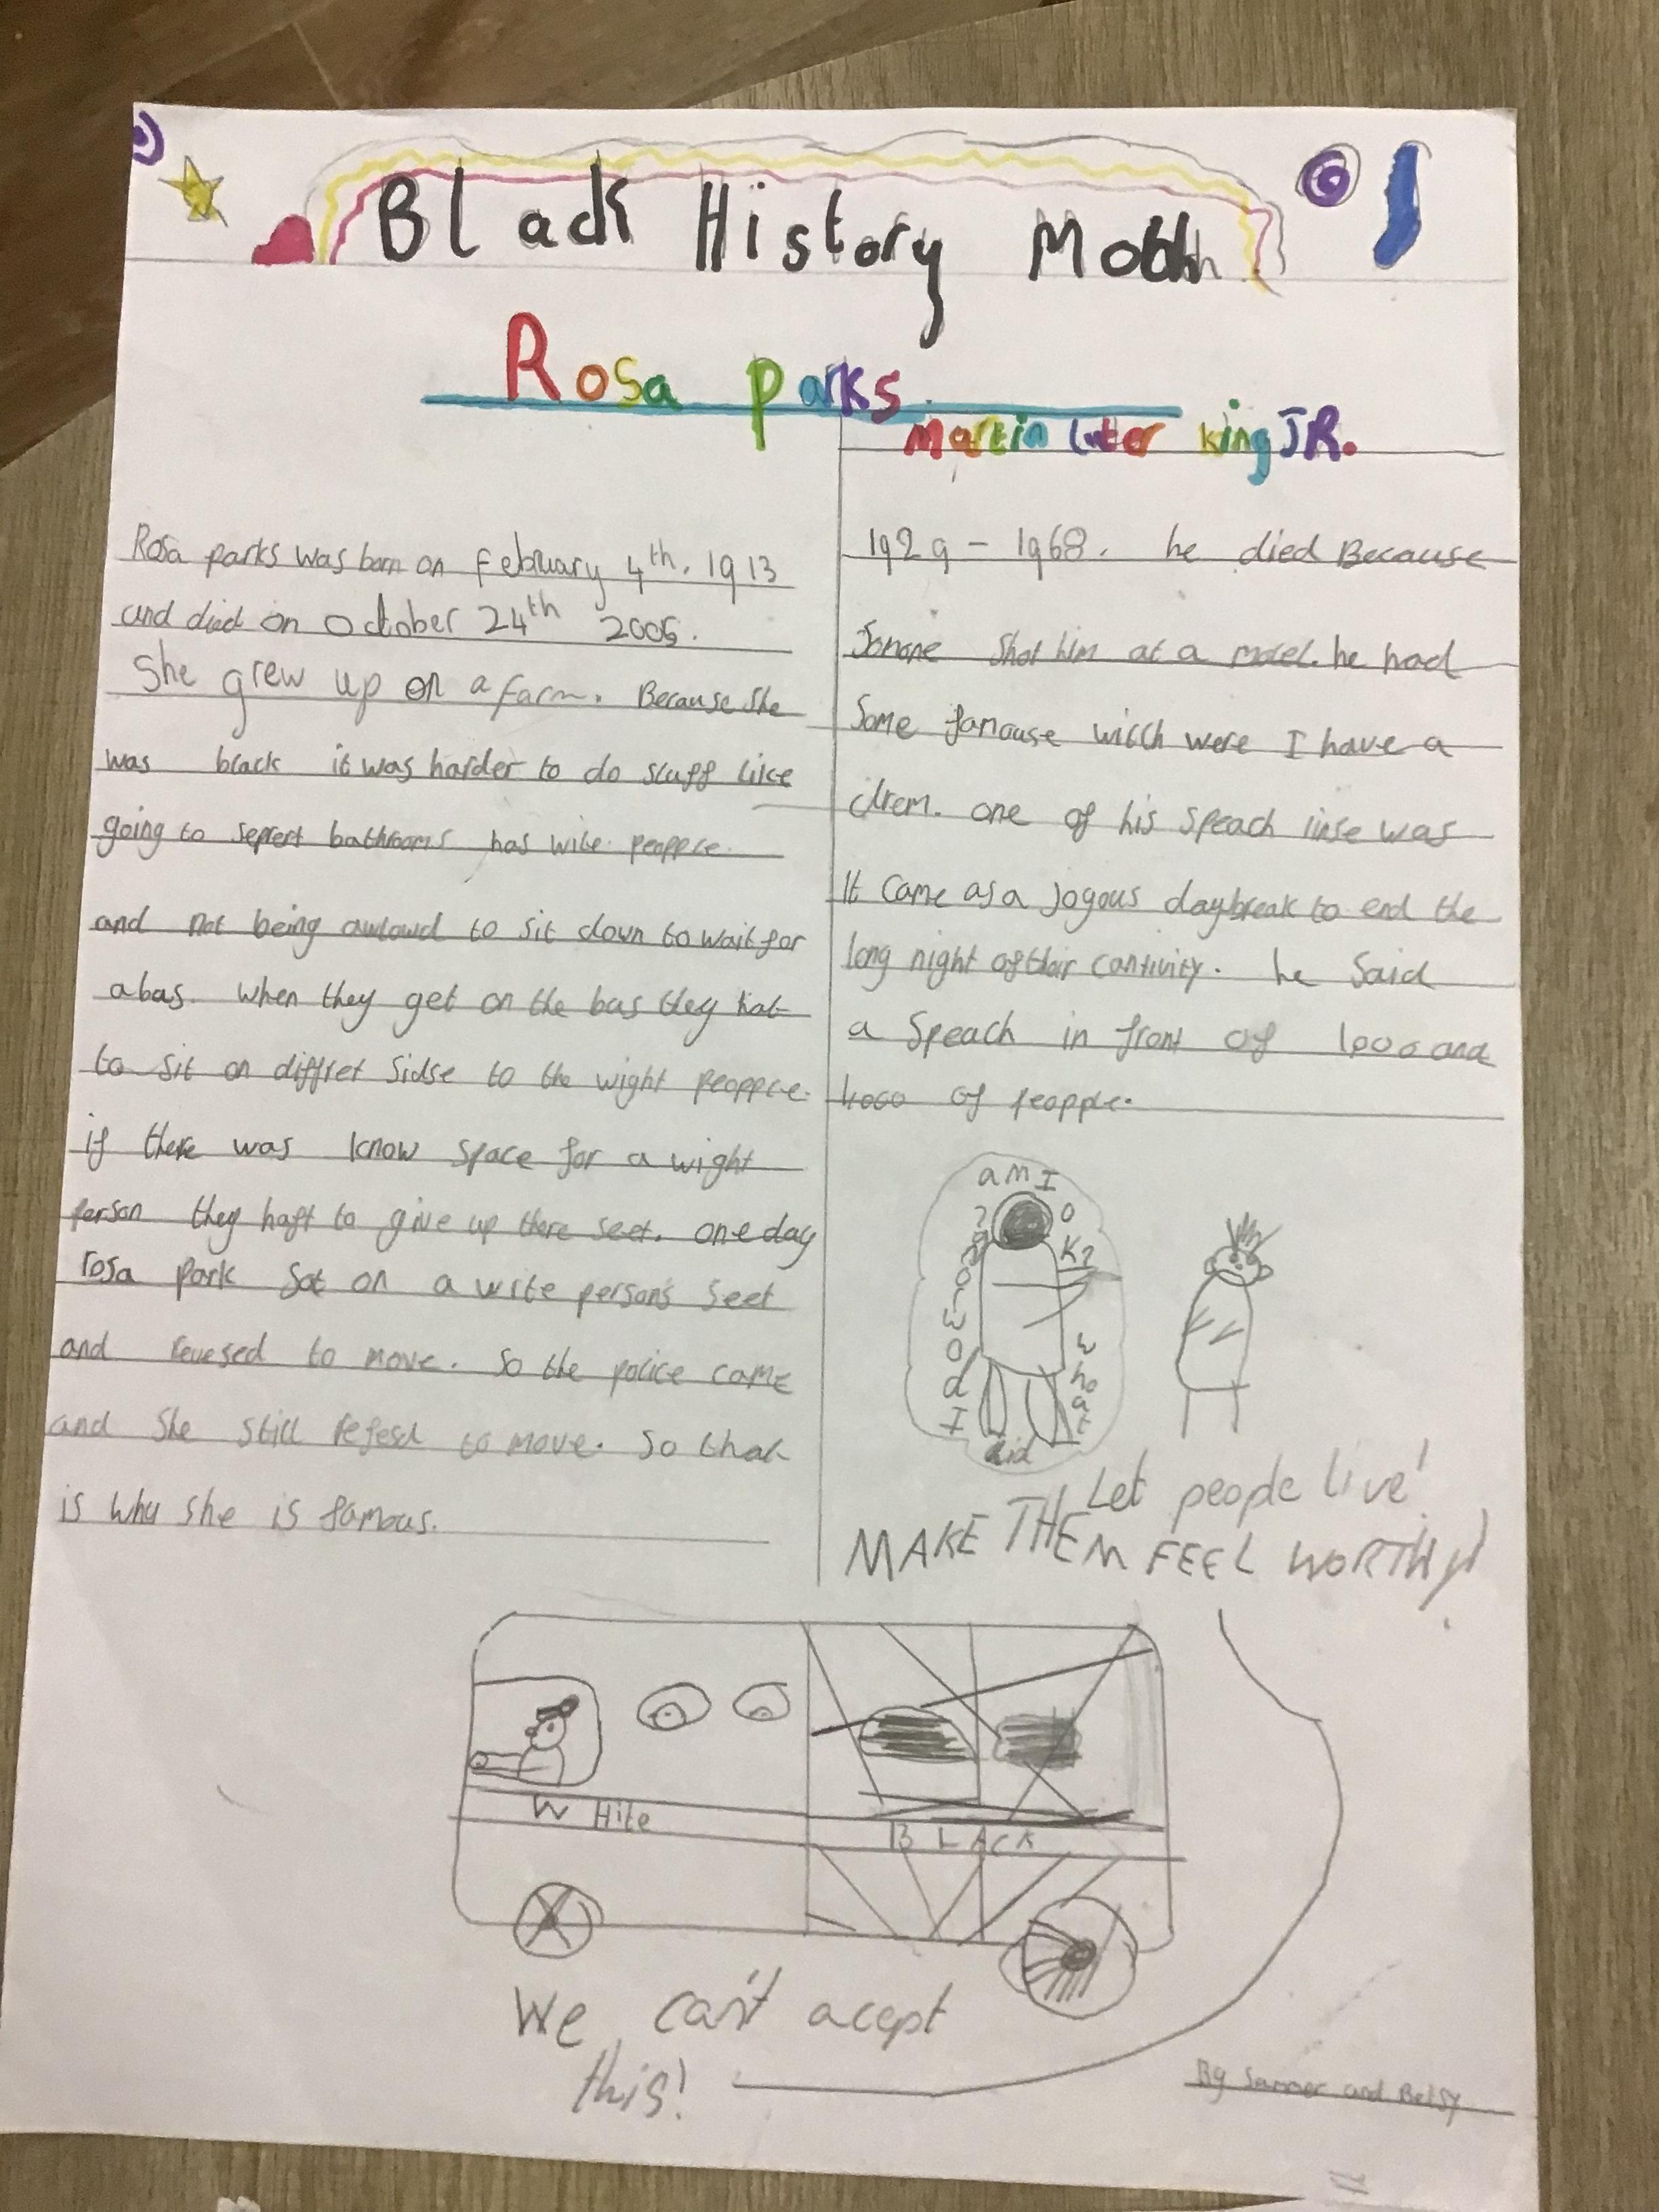 Black History Month
Rosa parks
Martin luter king JR.
Rosa parks was born on February 4th. 1913
and died on October 24th 2005.
She grew up on a farm. Because she
was black it was harder to do stuff like
going to sepret bathrooms has wite peopple.
and not being awlowd to sit down to wait for
a bas. When they get on the bas they hat
to sit on diffret sidse to the wight peopple.
if there was know space for a wight
person they haft to give up there seet. one day
rosa park sat on a wite person's seet
and reuesed to move. So the police came
and She still refesd to move. So that
is why she is famous.
1929 - 1968. he died Because
Somone Shot him at a motel. he had
Some famouse witch were I have a
drem. one of his Speach linse was
It came as a Joyous daybreak to end the
long night of their cantivity. he Said
a Speach in front of 1000 and
1000 of peopple.
am I
OK?
what
did
I do wrong?
Let people live!
MAKE THEM FEEL WORTHY!
WHite
BLACK
We can't acept
this!
By Summer and Betsy